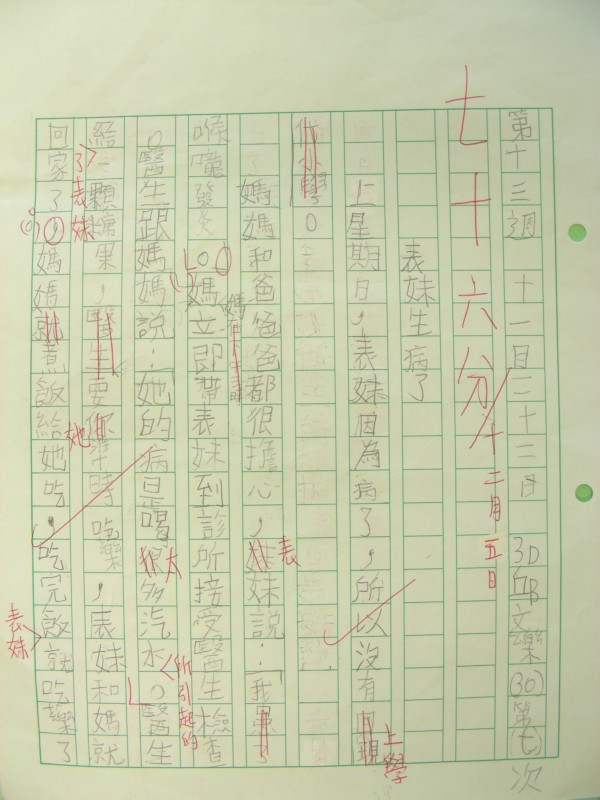 第十三週 十一月二十二日 3D 邱文樂 (30) 第(七)次
七十六分 十二月五日
表妹生病了
上星期日，表妹因為病了，所以沒有
上學
媽媽和爸爸都很擔心，妹妹說：「我
表
喉嚨發炎」。媽立即帶表妹到診所接受醫生檢查
媽
。醫生跟媽媽說：「她的病是喝很多汽水。醫生
太
所引起的
給一顆糖果，醫生要你準時吃藥，表妹和媽就
了表妹
她
回家了，媽媽就煮飯給她吃，吃完飯就吃藥了
表妹